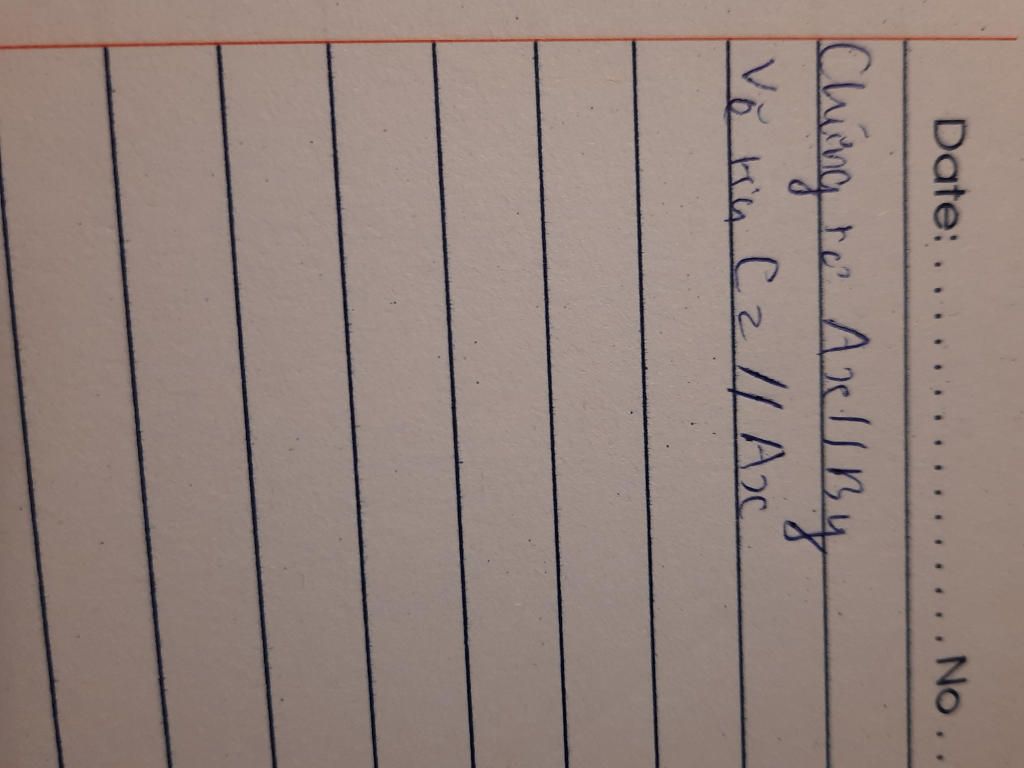 Date: ................ No ..
Chứng tỏ Ax // By
Vẽ tia Cz // Ax